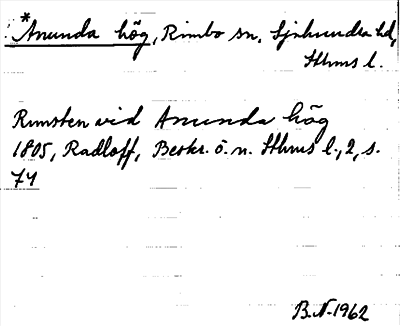 *Anunda hög, Rimbo sn, Sjuhundra hd,
Sthms l.
Runsten vid Anunda hög
1805, Radloff, Beskr. ö. n. Sthms l., 2, s.
74
B.N. 1962